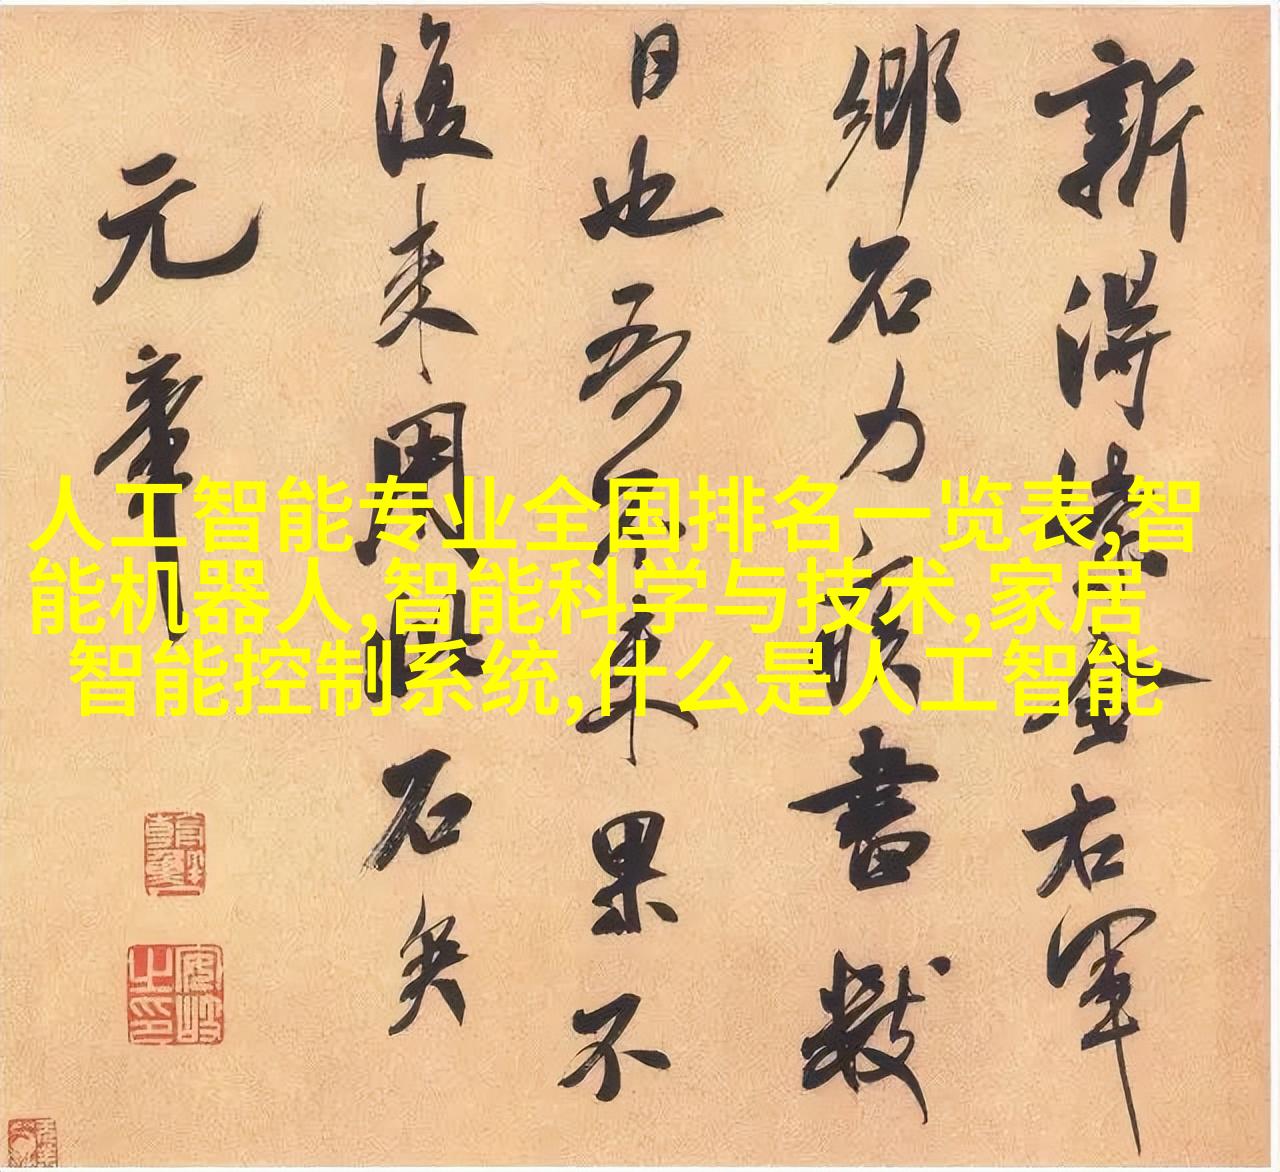 新得紫金右軍
鄉石力疾書數
日也吾來果不
復來用此石矣
元章
人工智能专业全国排名一览表,智
能机器人,智能科学与技术,家居
智能控制系统,什么是人工智能